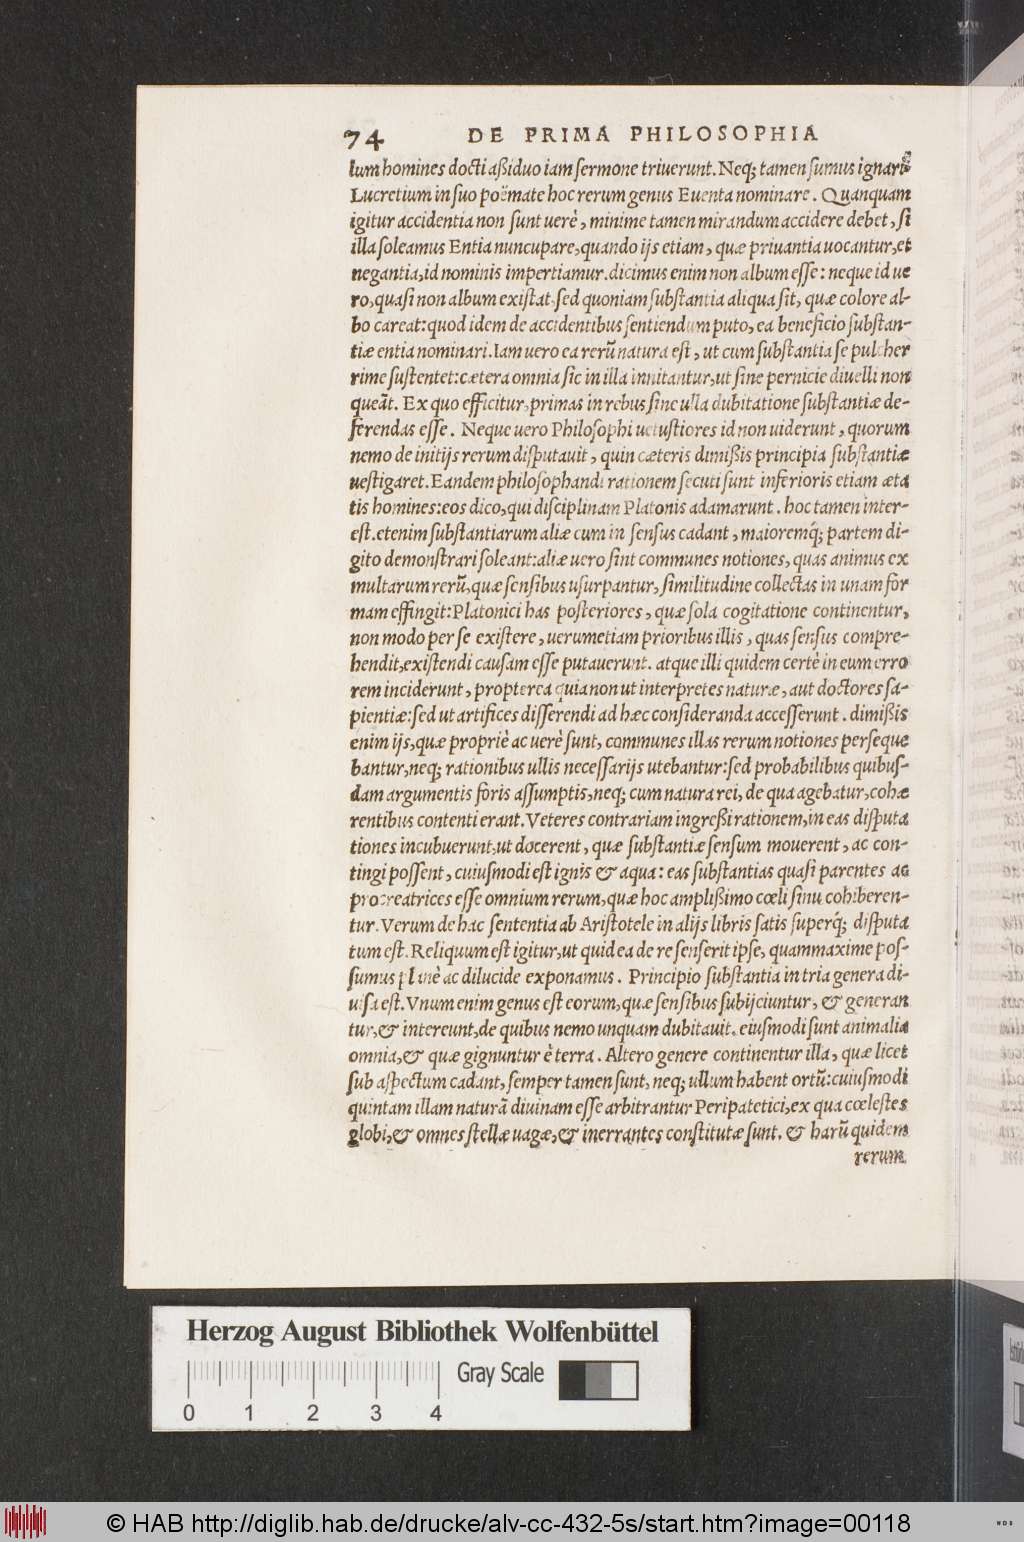 74 DE PRIMA PHILOSOPHIA
lum homines docti aßiduo iam sermone triuerunt. Neq; tamen sumus ignari
Lucretium in suo poëmate hoc rerum genus Euenta nominare. Quanquam
igitur accidentia non sunt uerè, minime tamen mirandum accidere debet, si
illa soleamus Entia nuncupare, quando ijs etiam, quæ priuantia uocantur, et
negantia, id nominis impertiamur. dicimus enim non album esse: neque id ue
ro, quasi non album existat, sed quoniam substantia aliqua sit, quæ colore al-
bo careat: quod idem de accidentibus sentiendum puto, ea beneficio substan-
tiæ entia nominari. Iam uero ea rerũ natura est, ut cum substantia se pulcher
rime sustentet: cætera omnia sic in illa innitantur, ut sine pernicie diuelli non
queãt. Ex quo efficitur, primas in rebus sine ulla dubitatione substantiæ de-
ferendas esse. Neque uero Philosophi uetustiores id non uiderunt, quorum
nemo de initijs rerum disputauit, quin cæteris dimißis principia substantiæ
uestigaret. Eandem philosophandi rationem secuti sunt inferioris etiam æta
tis homines: eos dico, qui disciplinam Platonis adamarunt. hoc tamen inter-
est. etenim substantiarum aliæ cum in sensus cadant, maioremq́; partem di-
gito demonstrari soleant: aliæ uero sint communes notiones, quas animus ex
multarum rerũ, quæ sensibus usurpantur, similitudine collectas in unam for
mam effingit: Platonici has posteriores, quæ sola cogitatione continentur,
non modo per se existere, uerumetiam prioribus illis, quas sensus compre-
hendit, existendi causam esse putauerunt. atque illi quidem certè in eum erro
rem inciderunt, propterea quia non ut interpretes naturæ, aut doctores sa-
pientiæ: sed ut artifices disserendi ad hæc consideranda accesserunt. dimißis
enim ijs, quæ propriè ac uerè sunt, communes illas rerum notiones perseque
bantur, neq; rationibus ullis necessarijs utebantur: sed probabilibus quibus-
dam argumentis foris assumptis, neq; cum natura rei, de qua agebatur, cohæ
rentibus contenti erant. Veteres contrariam ingreßi rationem, in eas disputa
tiones incubuerunt, ut docerent, quæ substantiæ sensum mouerent, ac con-
tingi possent, cuiusmodi est ignis & aqua: eas substantias quasi parentes ac
procreatrices esse omnium rerum, quæ hoc amplißimo cœli sinu cohiberen-
tur. Verum de hac sententia ab Aristotele in alijs libris satis superq́; disputa
tum est. Reliquum est igitur, ut quid ea de re senserit ipse, quammaxime pos-
sumus planè ac dilucide exponamus. Principio substantia in tria genera di-
uisa est. Vnum enim genus est eorum, quæ sensibus subijciuntur, & generan
tur, & intereunt, de quibus nemo unquam dubitauit. eiusmodi sunt animalia
omnia, & quæ gignuntur è terra. Altero genere continentur illa, quæ licet
sub aspectum cadant, semper tamen sunt, neq; ullum habent ortũ: cuiusmodi
quintam illam naturã diuinam esse arbitrantur Peripatetici, ex qua cœlestes
globi, & omnes stellæ uagæ, & inerrantes constitutæ sunt. & harũ quidem
rerum
Herzog August Bibliothek Wolfenbüttel
Gray Scale
0 1 2 3 4
© HAB http://diglib.hab.de/drucke/alv-cc-432-5s/start.htm?image=00118